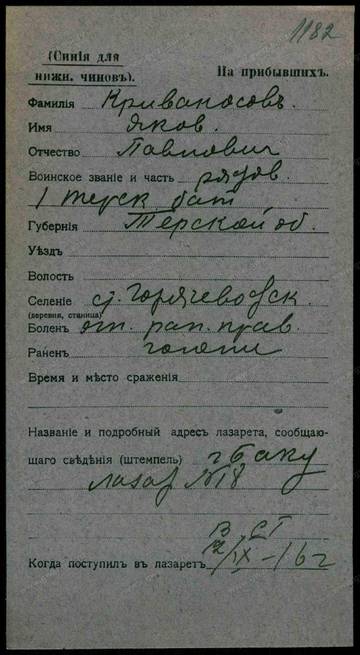 1182
(Синія для
нижн. чиновъ).
На прибывшихъ.
Фамилія Кривакосовъ.
Имя Яков.
Отчество Павлович
Воинское званіе и часть рядов.
1 терск. бат
Губернія Терской об.
Уѣздъ
Волость
Селеніе ст. Горячеводск.
(деревня, станица)
Боленъ ог. ран. прав.
Раненъ голени
Время и мѣсто сраженія
Названіе и подробный адресъ лазарета, сообщаю-
щаго свѣдѣнія (штемпель) г Баку
лазар №18
Когда поступилъ въ лазаретъ /IX-16 г